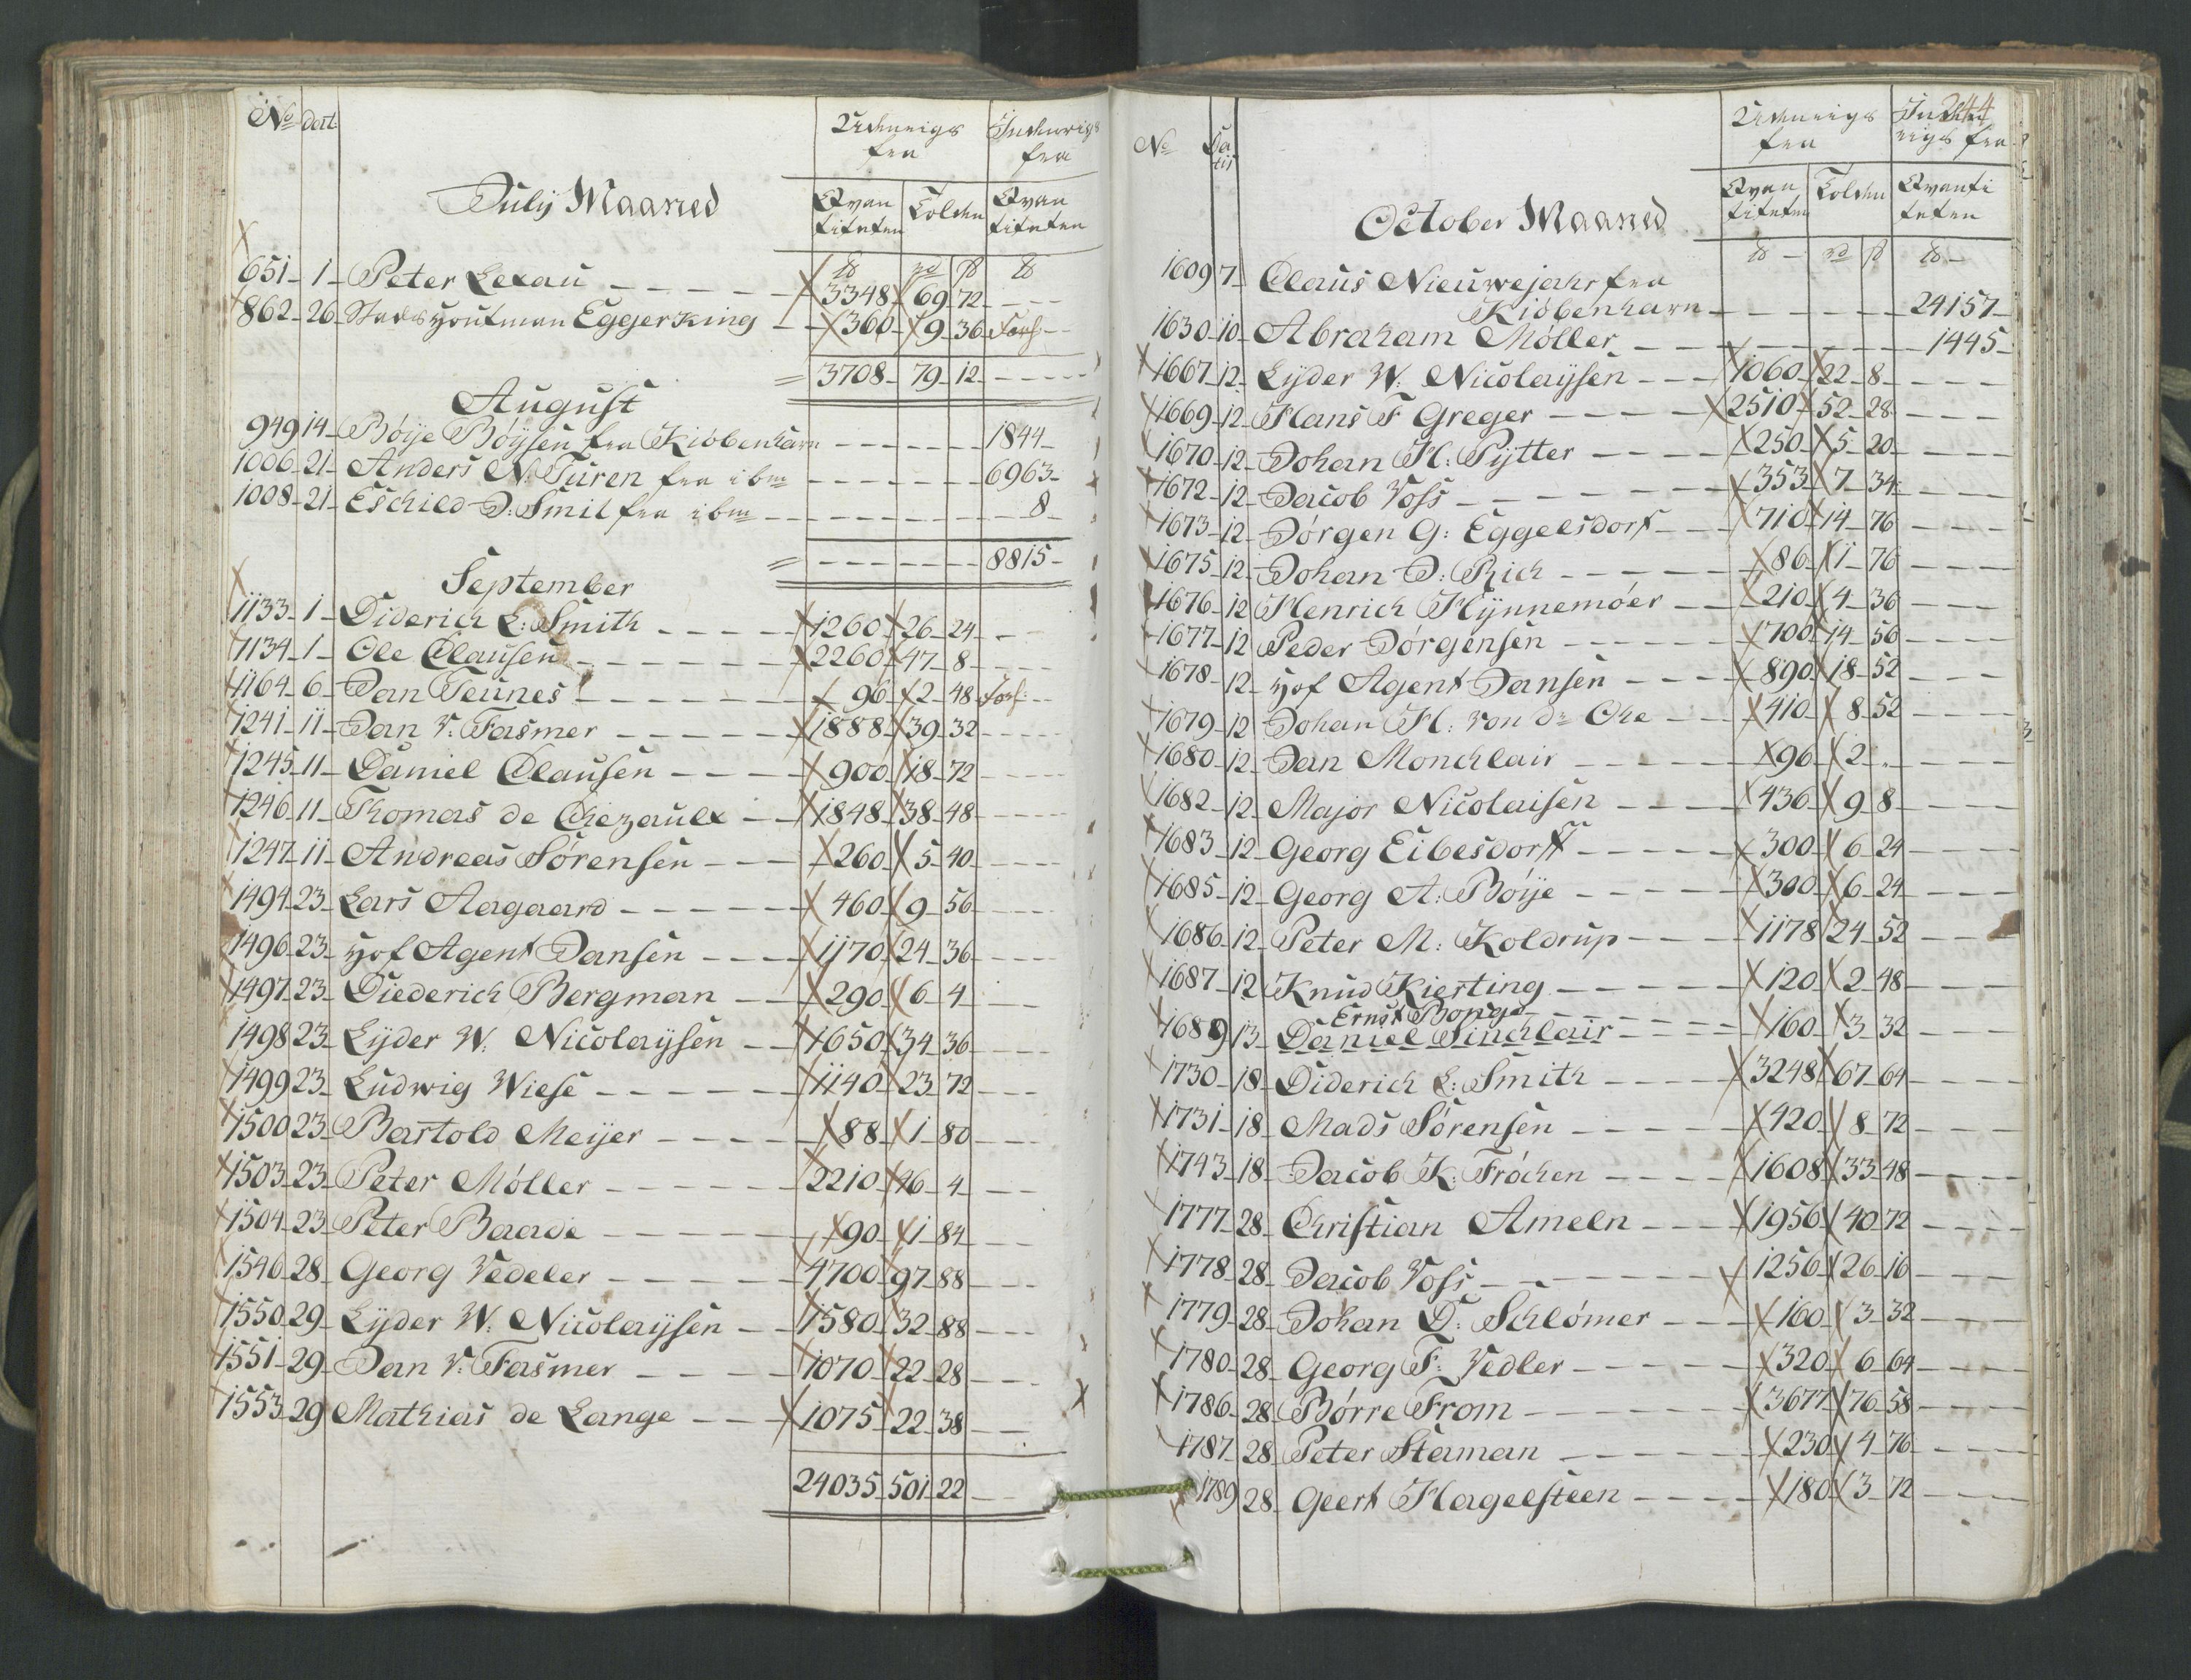 No dat: Udenrigs fra Indenrigs fra
July Maaned Qvantiteten Tolden Qvantiteten
℔ rd ß ℔
651 1 Peter Lexau 3348 69 72
862 26 Stads Houtman Eggerking 360 9 36
3708 79 12
August
949 14 Böye Böysen fra Kiöbenhavn 1844
1006 21 Anders N: Juren fra ibm 6963
1008 21 Eschild D: Smit fra ibm 8
8815
September
1133 1 Diderich L: Smith 1260 26 24
1134 1 Ole Clausen 2260 47 8
1164 6 Jan Teunes 96 2 48
1241 11 Jan v. Fasmer 1888 39 32
1245 11 Daniel Clausen 900 18 72
1246 11 Thomas de Chezaulx 1848 38 48
1247 11 Andreas Sörensen 260 5 40
1494 23 Lars Aagaard 460 9 56
1496 23 Hof Agent Jansen 1170 24 36
1497 23 Diederich Bergman 290 6 4
1498 23 Lyder W: Nicolaysen 1650 34 36
1499 23 Ludwig Wiese 1140 23 72
1500 23 Bartold Meyer 88 1 80
1503 23 Peter Möller 2210 46 4
1504 23 Peter Baade 90 1 84
1546 28 Georg Vedeler 4700 97 88
1550 29 Lyder W: Nicolaysen 1580 32 88
1551 29 Jan v: Fasmer 1070 22 28
1553 29 Mathias de Lange 1075 22 38
24035 501 22
244
No Datis Udenrigs fra Indenrigs fra
October Maaned Qvantiteten Tolden Qvantiteten
℔ rd ß ℔
1609 7 Claus Nieuwejahr fra
Kiöbenhavn 24157
1630 10 Abraham Möller 1445
1667 12 Lyder W: Nicolaysen 1060 22 8
1669 12 Hans F Greger 2510 52 28
1670 12 Johan H: Pytter 250 5 20
1672 12 Jacob Voss 353 7 34
1673 12 Jörgen G: Eggelsdorf 710 14 76
1675 12 Johan D: Rich 86 1 76
1676 12 Henrich Hÿnnemöer 210 4 36
1677 12 Peder Jörgensen 700 14 56
1678 12 Hof Agent Jansen 890 18 52
1679 12 Johan H: von dr Ohe 410 8 52
1680 12 Jan Monchlair 96 2
1682 12 Major Nicolaisen 436 9 8
1683 12 Georg Eibesdorff 300 6 24
1685 12 Georg A: Böÿe 300 6 24
1686 12 Peter M: Koldrup 1178 24 52
1687 12 Knud Kierting 120 2 48
Ernst Bonge
1689 13 Daniel Sinchlair 160 3 32
1730 18 Diderich L: Smith 3248 67 64
1731 18 Mads Sörensen 420 8 72
1743 18 Jacob K: Fröchen 1608 33 48
1777 28 Christian Ameln 1956 40 72
1778 28 Jacob Voss 1256 26 16
1779 28 Johan D: Schlömer 160 3 32
1780 28 Georg F: Vedler 320 6 64
1786 28 Börre From 3677 76 58
1787 28 Peter Staman 230 4 76
1789 28 Geert Hagelsteen 180 3 72